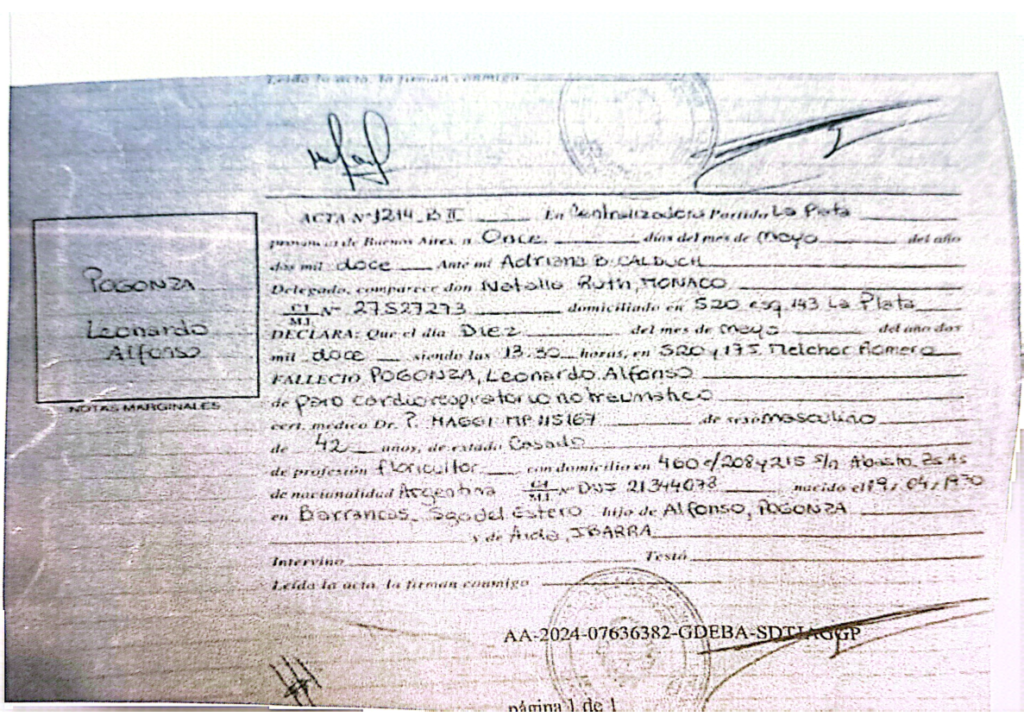 Leída la acta, la firman conmigo
ACTA Nº 1214 B II En Centralizadora Partido La Plata
provincia de Buenos Aires, a Once días del mes de mayo del año
dos mil doce Ante mí Adriana B. CALDUCH
Delegado, comparece don Natalia Ruth, MONACO
C.I. M.I. Nº 27527273 domiciliado en 520 esq. 143 La Plata
DECLARA: Que el día Diez del mes de mayo del año dos
mil doce siendo las 13.30 horas, en 520 y 175 Melchor Romero
FALLECIO POGONZA, Leonardo Alfonso
de paro cardiorespiratorio no traumatico
cert. médico Dr. P. MAGGI MP 115167 de sexo masculino
de 42 años, de estado Casado
de profesión floricultor con domicilio en 460 e/208 y 215 s/n Abasto, Bs As
de nacionalidad Argentina C.I. M.I. Nº DNI 21344078 nacido el 19/04/1970
en Barrancas, Sgo del Estero hijo de Alfonso, POGONZA
y de Aida, IBARRA
Intervino Testó
Leída la acta, la firman conmigo
POGONZA
Leonardo
Alfonso
NOTAS MARGINALES
AA-2024-07636382-GDEBA-SDTJAGGP
página 1 de 1